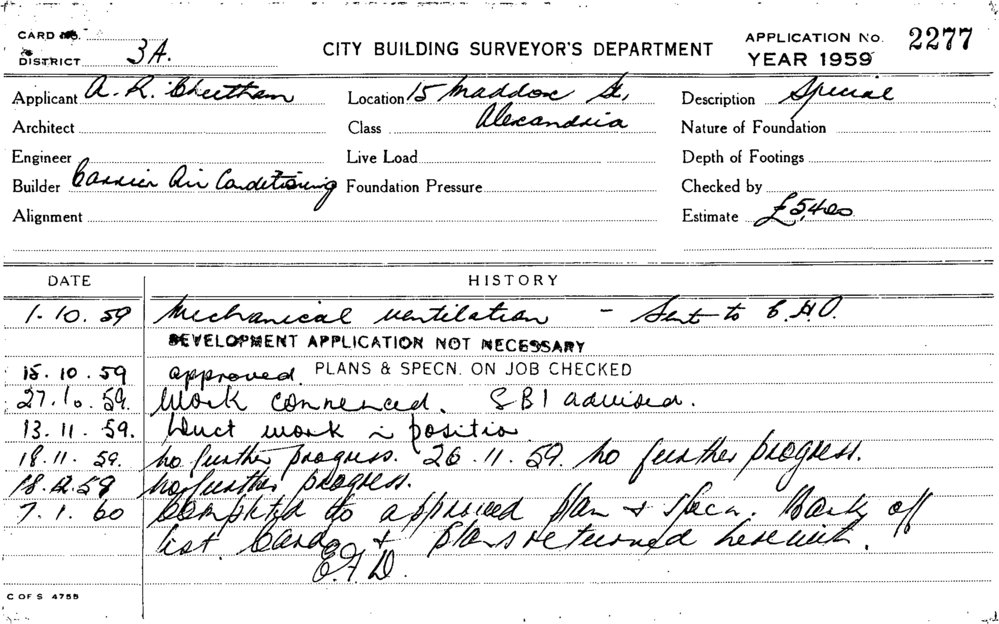 CARD No.
DISTRICT 3A.
CITY BUILDING SURVEYOR'S DEPARTMENT
APPLICATION No. 2277
YEAR 1959
Applicant A. R. Cheetham
Location 15 Maddox St,
Description Special
Architect
Class Alexandria
Nature of Foundation
Engineer
Live Load
Depth of Footings
Builder Carrier Air Conditioning
Foundation Pressure
Checked by
Alignment
Estimate £5,400
DATE HISTORY
1.10.59 Mechanical ventilation - Sent to C.H.O.
DEVELOPMENT APPLICATION NOT NECESSARY
15.10.59 approved. PLANS & SPECN. ON JOB CHECKED
27.10.59. Work commenced. SBI advised.
13.11.59. Duct work in position
18.11.59. No further progress. 26.11.59. No further progress.
18.12.59 No further progress.
7.1.60 Completed to approved plan & specn. Mark off
list. Card & plans returned herewith.
C OF S 4755